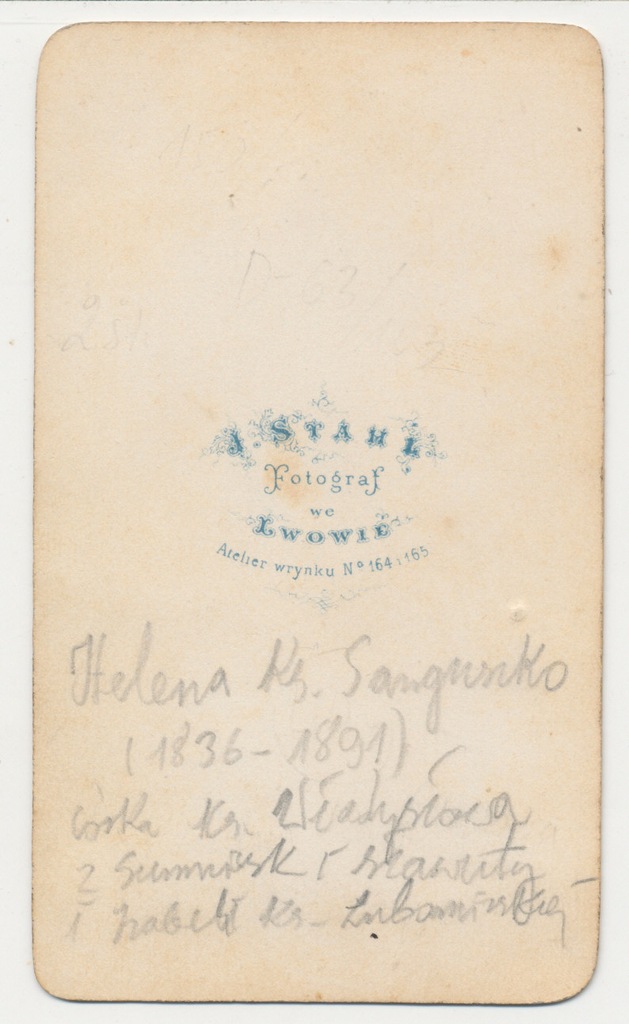 J. STAHL
Fotograf
we
LWOWIE
Atelier wrynku No 164 i 165
Helena Ks. Sanguszko
(1836-1891)
córka Ks. Władysława
z Gumnisk i Sławuty
i Izabeli Ks. Lubomirskiej